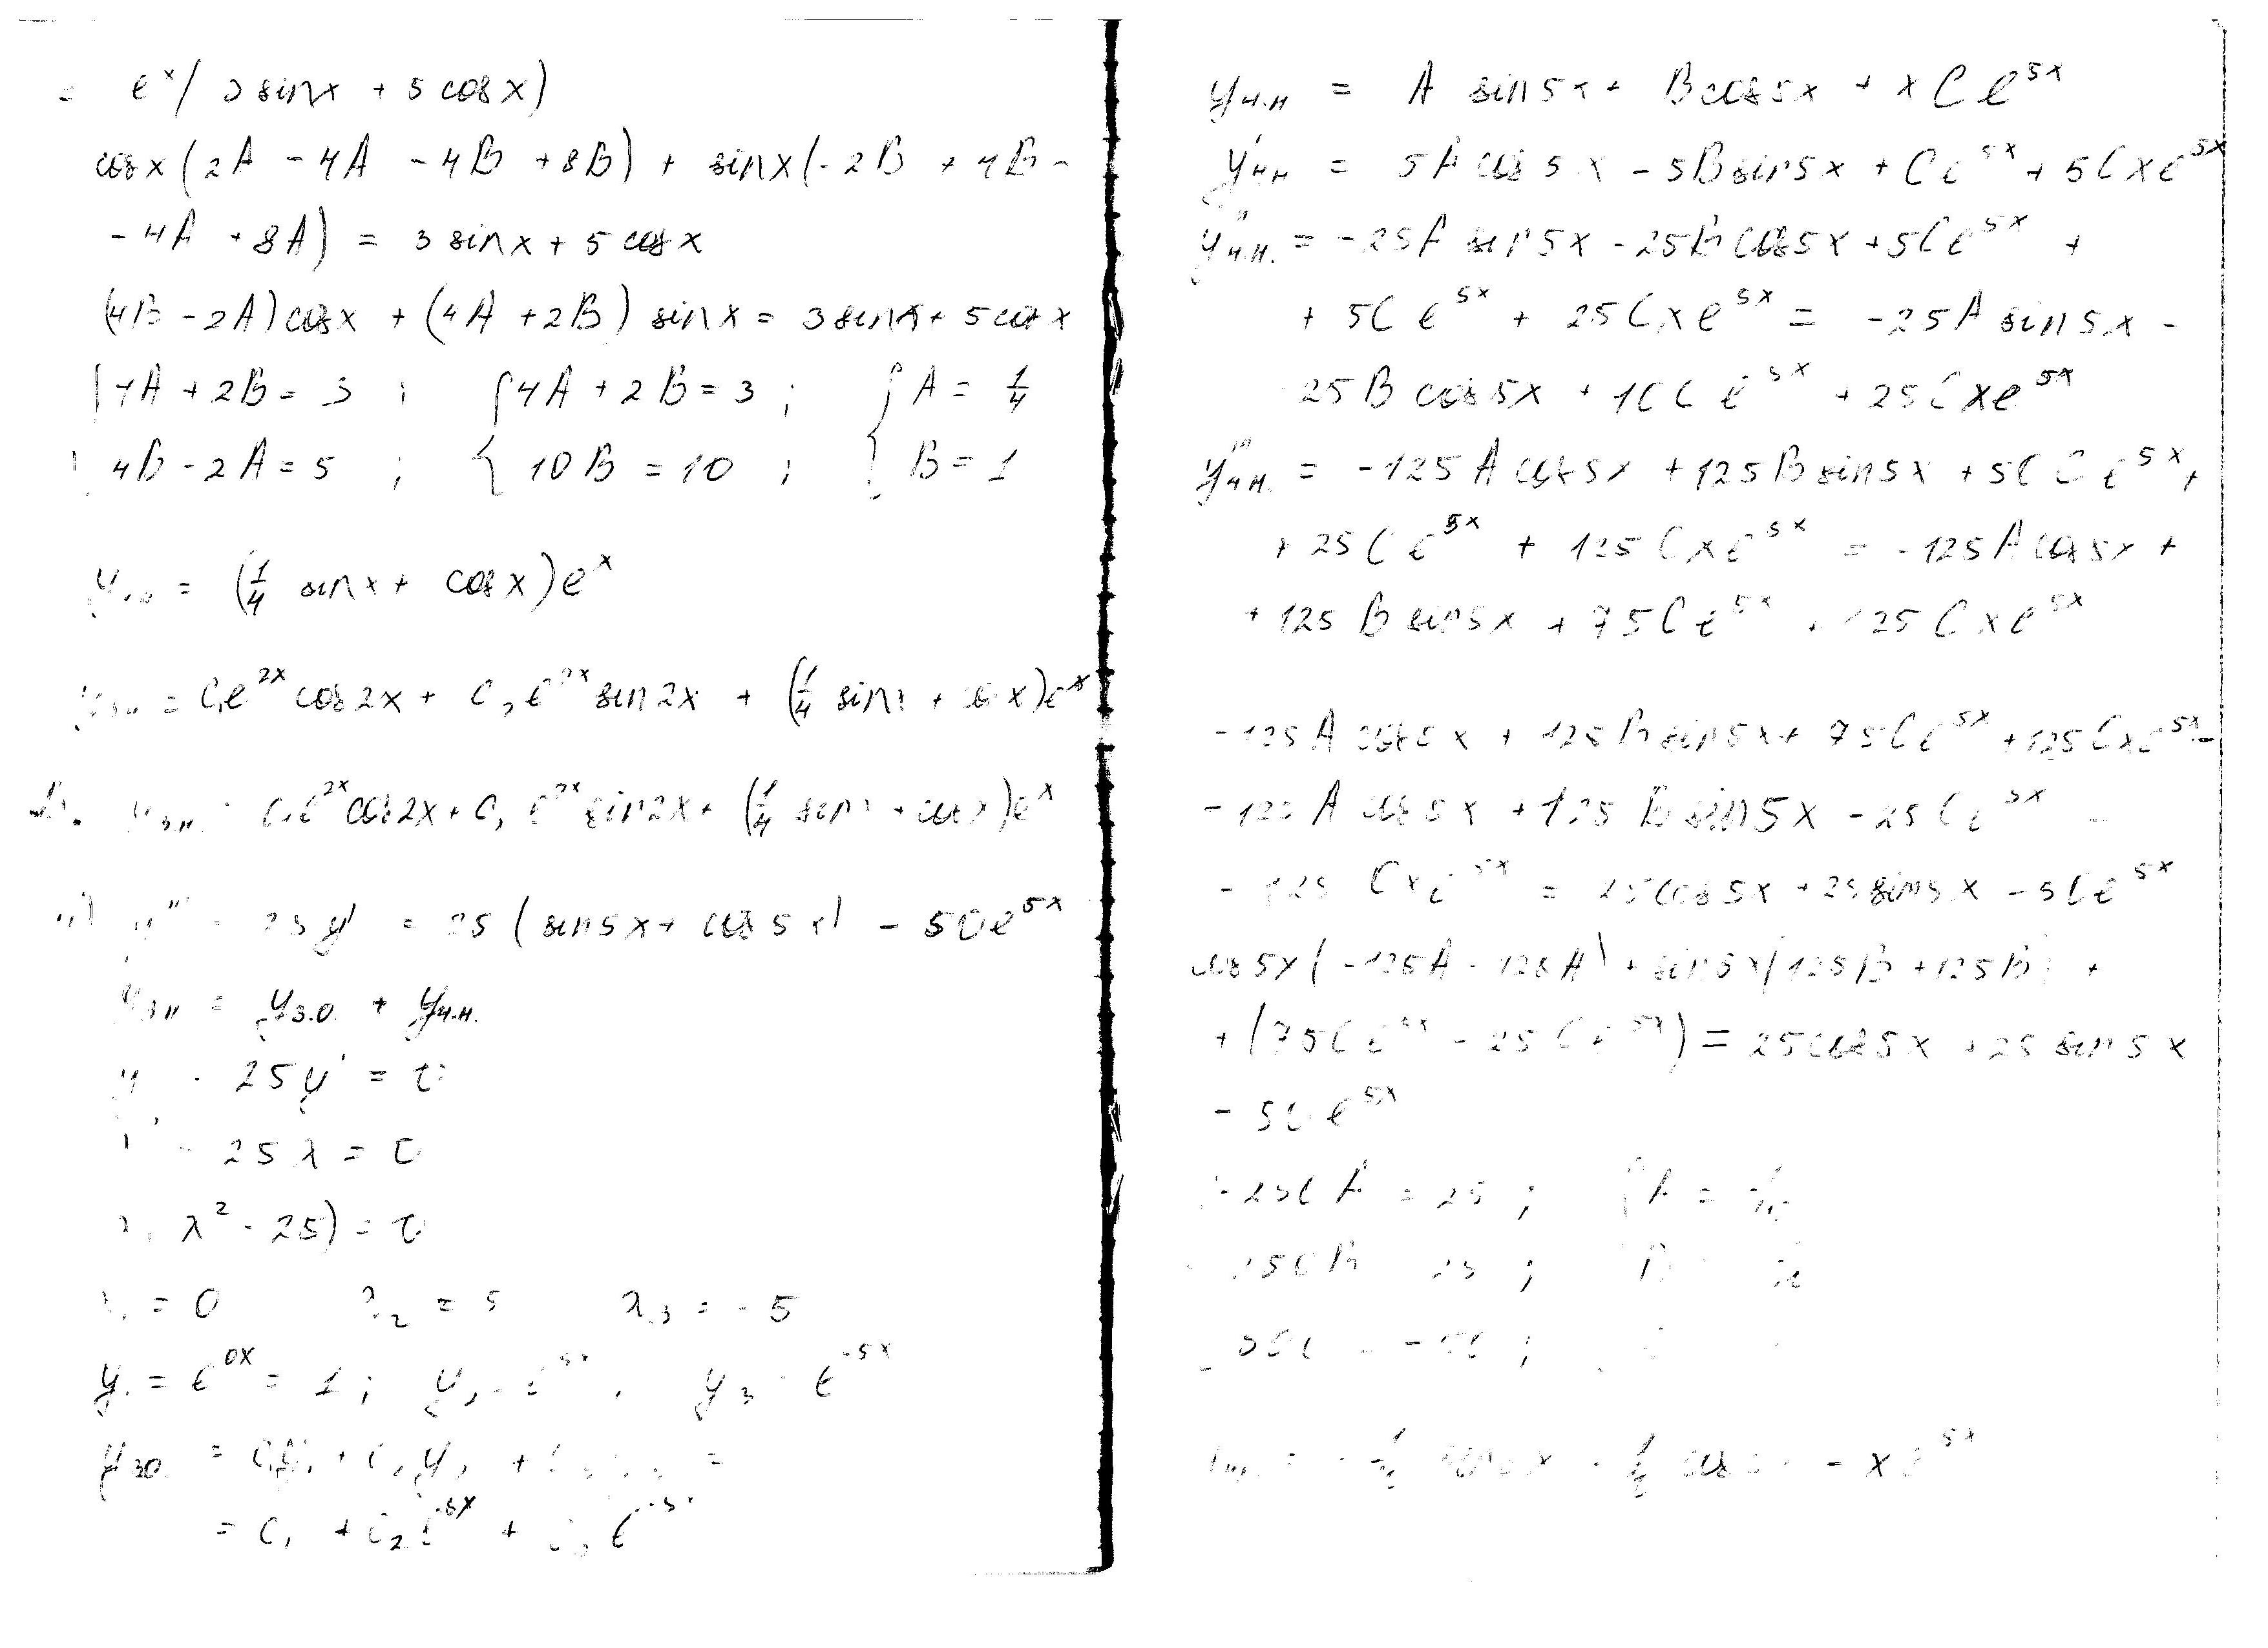 = e^x(3 sinx + 5 cosx)
cosx(2A - 4A - 4B + 8B) + sinx(-2B + 4B -
- 4A + 8A) = 3 sinx + 5 cosx
(4B - 2A)cosx + (4A + 2B) sinx = 3 sinx + 5 cosx
{4A + 2B = 3 ; {4A + 2B = 3 ; {A = 1/4
4B - 2A = 5 ; 10B = 10 ; B = 1
= (1/4 sinx + cosx)e^x
= C₁e^2x cos2x + C₂e^2x sin2x + (1/4 sinx + cosx)e^x
C₁e^2x cos2x + C₂e^2x sin2x + (1/4 sinx + cosx)e^x
y''' - 25y' = 25(sin5x + cos5x) - 50e^5x
= yз.о. + yч.н.
- 25y' = 0
- 25λ = 0
λ² - 25) = 0
= 0 λ₂ = 5 λ₃ = -5
y₁ = e^0x = 1 ; y₂ = e^5x , y₃ = e^-5x
yзо. = C₁y₁ + C₂y₂ + =
= C₁ + C₂e^5x + C₃e^-5x
yч.н = A sin5x + Bcos5x + xCe^5x
y'чн = 5A cos5x - 5Bsin5x + Ce^5x + 5Cxe^5x
y''ч.н. = -25A sin5x - 25Bcos5x + 5Ce^5x +
+ 5Ce^5x + 25Cxe^5x = -25A sin5x -
25B cos5x + 10Ce^5x + 25Cxe^5x
y'''чн. = -125Acos5x + 125Bsin5x + 50Ce^5x +
+ 25Ce^5x + 125Cxe^5x = -125Acos5x +
+ 125Bsin5x + 75Ce^5x + 125Cxe^5x
-125A cos5x + 125Bsin5x + 75Ce^5x + 125Cxe^5x -
- 125A cos5x + 125Bsin5x - 25Ce^5x -
- 125Cxe^5x = 25cos5x + 25sin5x - 50e^5x
cos5x(-125A - 125A) + sin5x(125B + 125B) +
+ (75Ce^5x - 25Ce^5x) = 25cos5x + 25 sin5x
- 50e^5x
-250A = 25 ; {A =
250B 25 ;
50C = -50 ;
- xe^5x